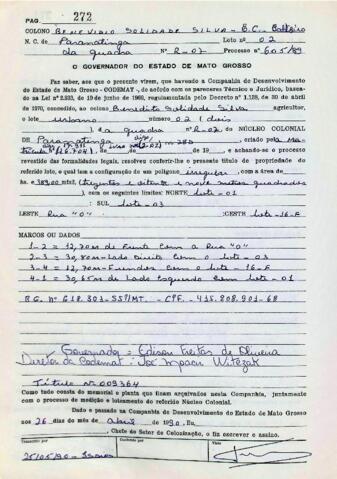 PAG. 272
COLONO BENEVIDIO SOLIDADE SILVA - B.C.
N. C. de Paranatinga Lote nº 02
da quadra Nº R-07 Processo nº 605/89
O GOVERNADOR DO ESTADO DE MATO GROSSO
Faz saber, aos que o presente virem, que havendo a Companhia de Desenvolvimento
do Estado de Mato Grosso - CODEMAT -, de acordo com os pareceres Técnico e Jurídico, basea-
do na Lei nº 2.933, de 19 de junho de 1969, regulamentada pelo Decreto nº 1.138, de 20 de abril
de 1970, concedido, ao colono Benedito Solidade Silva agricultor,
o lote urbano número 02 (dois
) da quadra nº R-02 do NÚCLEO COLONIAL
DE Paranatinga criado pela Ma-
tricula nº
de de de 19 , e achando-se o processo
revestido das formalidades legais, resolveu conferir-lhe o presente título de propriedade
do referido lote, o qual tem a configuração de um polígono irregular com a área de
ha e 389,00 mts2, (trezentos e oitenta e nove metros quadrados
), com os seguintes limites: NORTE Lote-01
SUL Lote-03
LESTE Rua "O" OESTE Lote-16-F
MARCOS OU DADOS
1-2 = 12,70m de Frente com a Rua "O"
2-3 = 30,80m Lado Direito com o Lote-03
3-4 = 12,70m Fundos com o Lote-16-F
4-1 = 30,65m de Lado Esquerdo com Lote-01
R.G. Nº 618.803-SSP/MT. - CPF. - 415.808.901-68
Governador = Edison Freitas de Oliveira
Diretor da Codemat -
Titulo Nº 009364
Como tudo consta do memorial e planta que ficam arquivados nesta Companhia, juntamente
com o processo de medição e loteamento do referido Núcleo Colonial.
Dado e passado na Companhia de Desenvolvimento do Estado de Mato Grosso
aos 26 dias do mês de abril de 1990. Eu,
, Chefe do Setor de Colonização, o fiz escrever e assino.
Transcrito por Conferido por Visto
25/05/90